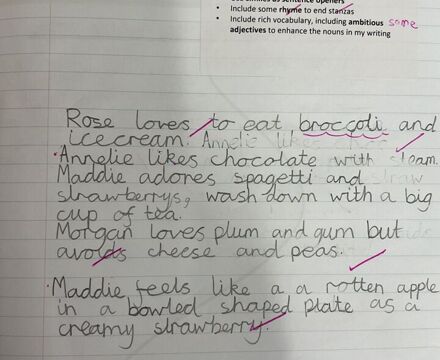 Include some rhyme to end stanzas
Include rich vocabulary, including ambitious some
adjectives to enhance the nouns in my writing
Rose loves to eat broccoli and
icecream. Annelie likes
Annelie likes chocolate with
Maddie adores spagetti and
strawberrys, wash down with a big
cup of tea.
Morgan loves plum and gum but
avoids cheese and peas.
Maddie feels like a a rotten apple
in a bowled shaped plate as a
creamy strawberry.